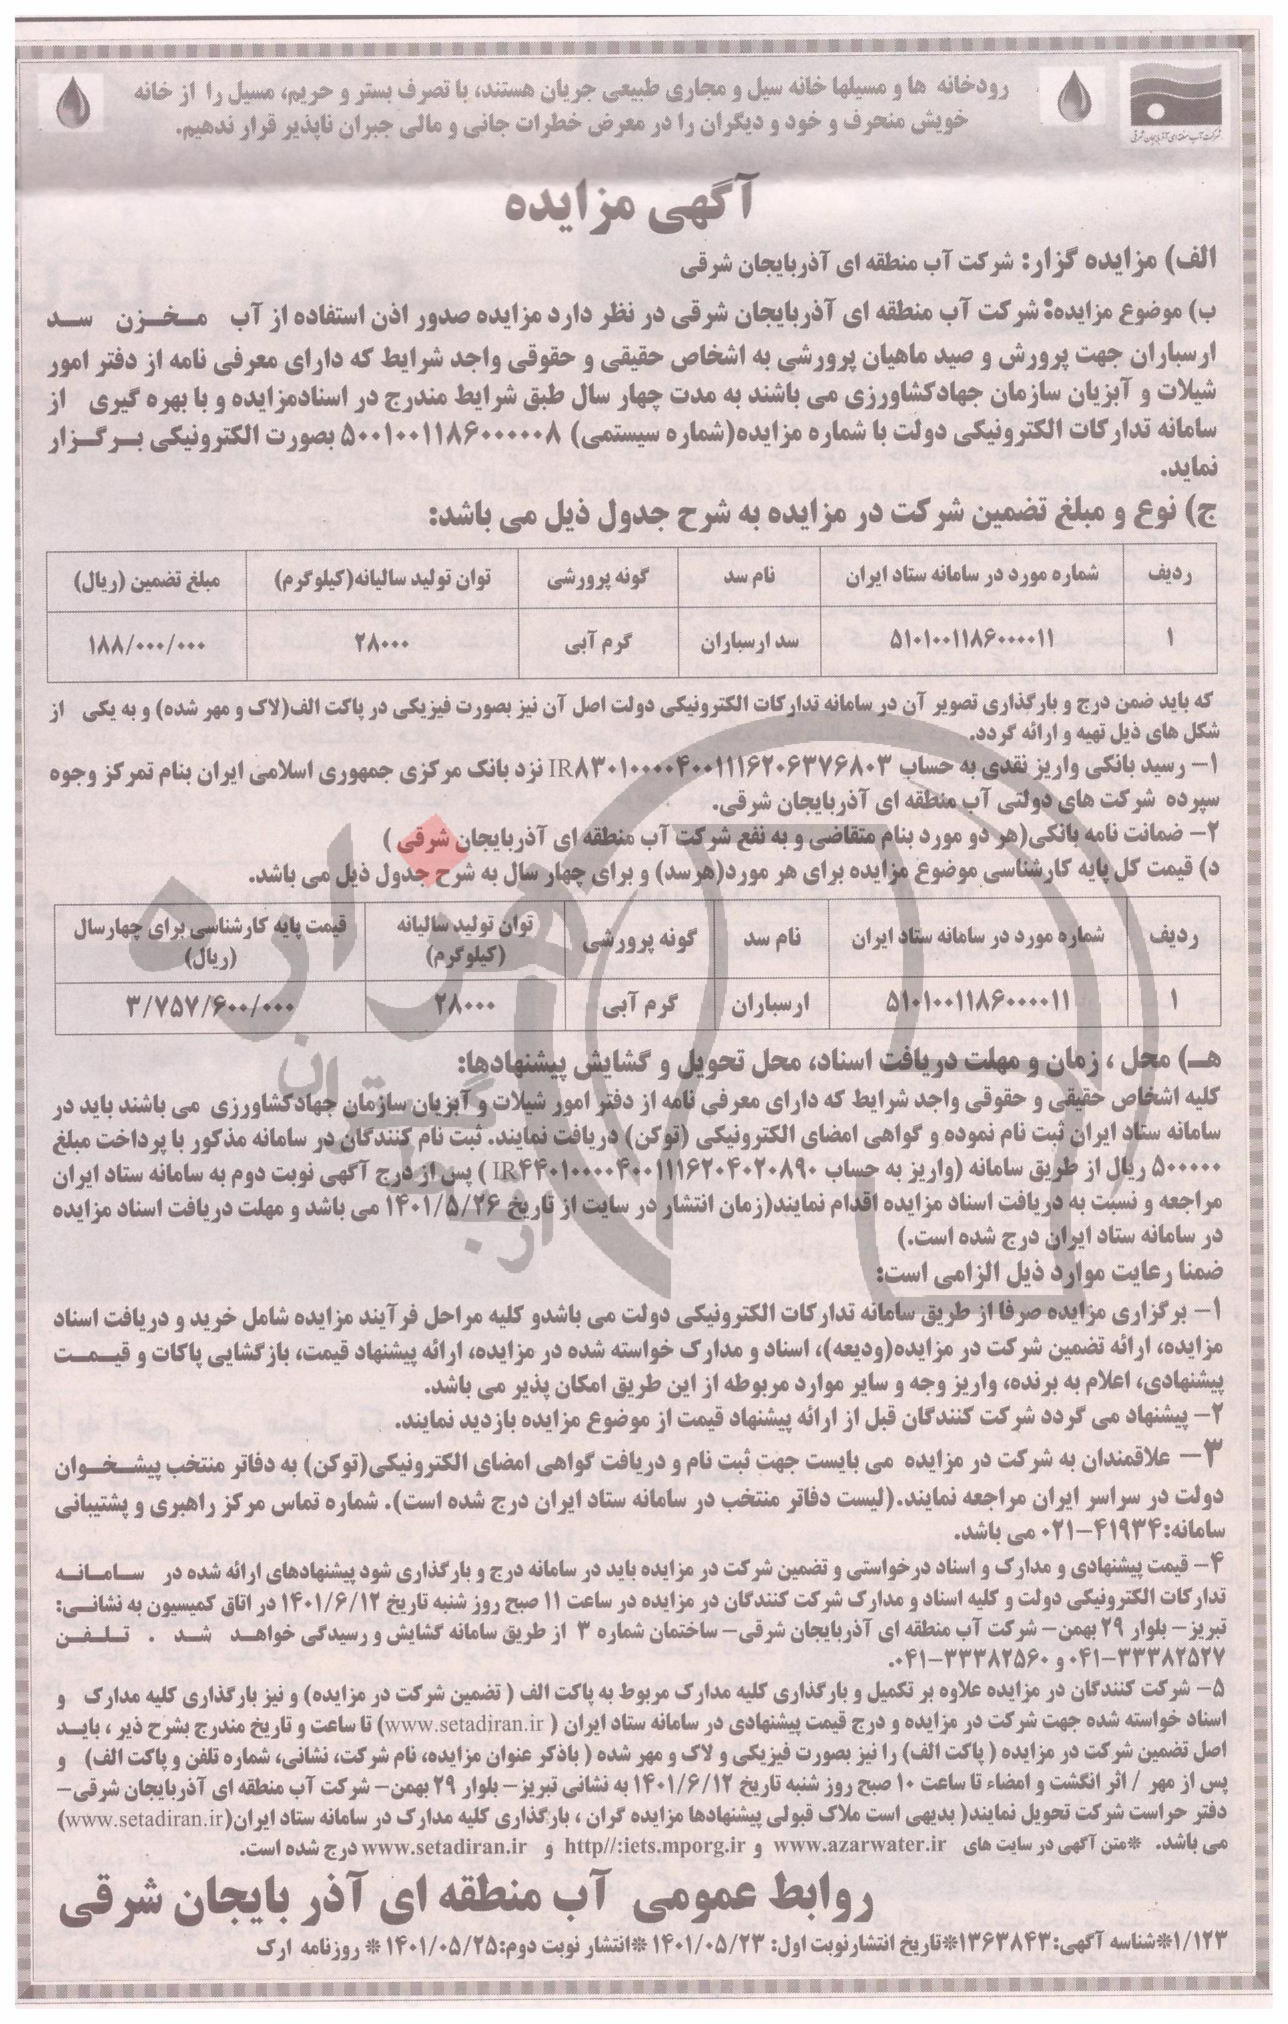 رودخانه ها و مسیلها خانه سیل و مجاری طبیعی جریان هستند، با تصرف بستر و حریم، مسیل را از خانه
خویش منحرف و خود و دیگران را در معرض خطرات جانی و مالی جبران ناپذیر قرار ندهیم.
شرکت آب منطقه ای آذربایجان شرقی
آگهی مزایده
الف) مزایده گزار: شرکت آب منطقه ای آذربایجان شرقی
ب) موضوع مزایده: شرکت آب منطقه ای آذربایجان شرقی در نظر دارد مزایده صدور اذن استفاده از آب مخزن سد
ارسباران جهت پرورش و صید ماهیان پرورشی به اشخاص حقیقی و حقوقی واجد شرایط که دارای معرفی نامه از دفتر امور
شیلات و آبزیان سازمان جهادکشاورزی می باشند به مدت چهار سال طبق شرایط مندرج در اسنادمزایده و با بهره گیری از
سامانه تدارکات الکترونیکی دولت با شماره مزایده(شماره سیستمی) ۵۰۰۱۰۰۱۱۸۶۰۰۰۰۰۸ بصورت الکترونیکی برگزار
نماید.
ج) نوع و مبلغ تضمین شرکت در مزایده به شرح جدول ذیل می باشد:
ردیف شماره مورد در سامانه ستاد ایران نام سد گونه پرورشی توان تولید سالیانه(کیلوگرم) مبلغ تضمین (ریال)
۱ ۵۱۰۱۰۰۱۱۸۶۰۰۰۰۱۱ سد ارسباران گرم آبی ۲۸۰۰۰ ۱۸۸/۰۰۰/۰۰۰
که باید ضمن درج و بارگذاری تصویر آن در سامانه تدارکات الکترونیکی دولت اصل آن نیز بصورت فیزیکی در پاکت الف(لاک و مهر شده) و به یکی از
شکل های ذیل تهیه و ارائه گردد.
۱- رسید بانکی واریز نقدی به حساب IR۸۳۰۱۰۰۰۰۴۰۰۱۱۱۶۲۰۶۳۷۶۸۰۳ نزد بانک مرکزی جمهوری اسلامی ایران بنام تمرکز وجوه
سپرده شرکت های دولتی آب منطقه ای آذربایجان شرقی.
۲- ضمانت نامه بانکی(هر دو مورد بنام متقاضی و به نفع شرکت آب منطقه ای آذربایجان شرقی )
د) قیمت کل پایه کارشناسی موضوع مزایده برای هر مورد(هرسد) و برای چهار سال به شرح جدول ذیل می باشد.
ردیف شماره مورد در سامانه ستاد ایران نام سد گونه پرورشی توان تولید سالیانه (کیلوگرم) قیمت پایه کارشناسی برای چهارسال (ریال)
۱ ۵۱۰۱۰۰۱۱۸۶۰۰۰۰۱۱ ارسباران گرم آبی ۲۸۰۰۰ ۳/۷۵۷/۶۰۰/۰۰۰
هـ) محل ، زمان و مهلت دریافت اسناد، محل تحویل و گشایش پیشنهادها:
کلیه اشخاص حقیقی و حقوقی واجد شرایط که دارای معرفی نامه از دفتر امور شیلات و آبزیان سازمان جهادکشاورزی می باشند باید در
سامانه ستاد ایران ثبت نام نموده و گواهی امضای الکترونیکی (توکن) دریافت نمایند. ثبت نام کنندگان در سامانه مذکور با پرداخت مبلغ
۵۰۰۰۰۰ ریال از طریق سامانه (واریز به حساب IR۴۴۰۱۰۰۰۰۴۰۰۱۱۱۶۲۰۴۰۲۰۸۹۰ ) پس از درج آگهی نوبت دوم به سامانه ستاد ایران
مراجعه و نسبت به دریافت اسناد مزایده اقدام نمایند(زمان انتشار در سایت از تاریخ ۱۴۰۱/۵/۲۶ می باشد و مهلت دریافت اسناد مزایده
در سامانه ستاد ایران درج شده است.)
ضمنا رعایت موارد ذیل الزامی است:
۱- برگزاری مزایده صرفا از طریق سامانه تدارکات الکترونیکی دولت می باشدو کلیه مراحل فرآیند مزایده شامل خرید و دریافت اسناد
مزایده، ارائه تضمین شرکت در مزایده(ودیعه)، اسناد و مدارک خواسته شده در مزایده، ارائه پیشنهاد قیمت، بازگشایی پاکات و قیمت
پیشنهادی، اعلام به برنده، واریز وجه و سایر موارد مربوطه از این طریق امکان پذیر می باشد.
۲- پیشنهاد می گردد شرکت کنندگان قبل از ارائه پیشنهاد قیمت از موضوع مزایده بازدید نمایند.
۳- علاقمندان به شرکت در مزایده می بایست جهت ثبت نام و دریافت گواهی امضای الکترونیکی(توکن) به دفاتر منتخب پیشخوان
دولت در سراسر ایران مراجعه نمایند.(لیست دفاتر منتخب در سامانه ستاد ایران درج شده است). شماره تماس مرکز راهبری و پشتیبانی
سامانه:۴۱۹۳۴-۰۲۱ می باشد.
۴- قیمت پیشنهادی و مدارک و اسناد درخواستی و تضمین شرکت در مزایده باید در سامانه درج و بارگذاری شود پیشنهادهای ارائه شده در سامانه
تدارکات الکترونیکی دولت و کلیه اسناد و مدارک شرکت کنندگان در مزایده در ساعت ۱۱ صبح روز شنبه تاریخ ۱۴۰۱/۶/۱۲ در اتاق کمیسیون به نشانی:
تبریز- بلوار ۲۹ بهمن- شرکت آب منطقه ای آذربایجان شرقی- ساختمان شماره ۳ از طریق سامانه گشایش و رسیدگی خواهد شد . تلفن
۳۳۳۸۲۵۲۷-۰۴۱ و ۳۳۳۸۲۵۶۰-۰۴۱.
۵- شرکت کنندگان در مزایده علاوه بر تکمیل و بارگذاری کلیه مدارک مربوط به پاکت الف ( تضمین شرکت در مزایده) و نیز بارگذاری کلیه مدارک و
اسناد خواسته شده جهت شرکت در مزایده و درج قیمت پیشنهادی در سامانه ستاد ایران ( www.setadiran.ir) تا ساعت و تاریخ مندرج بشرح ذیر ، باید
اصل تضمین شرکت در مزایده ( پاکت الف) را نیز بصورت فیزیکی و لاک و مهر شده ( باذکر عنوان مزایده، نام شرکت، نشانی، شماره تلفن و پاکت الف) و
پس از مهر / اثر انگشت و امضاء تا ساعت ۱۰ صبح روز شنبه تاریخ ۱۴۰۱/۶/۱۲ به نشانی تبریز- بلوار ۲۹ بهمن- شرکت آب منطقه ای آذربایجان شرقی-
دفتر حراست شرکت تحویل نمایند( بدیهی است ملاک قبولی پیشنهادها مزایده گران ، بارگذاری کلیه مدارک در سامانه ستاد ایران(www.setadiran.ir)
می باشد. *متن آگهی در سایت های www.azarwater.ir و http//:iets.mporg.ir و www.setadiran.ir درج شده است.
روابط عمومی آب منطقه ای آذر بایجان شرقی
۱/۱۲۳*شناسه آگهی:۱۳۶۳۸۴۳*تاریخ انتشارنوبت اول: ۱۴۰۱/۰۵/۲۳ *انتشار نوبت دوم:۱۴۰۱/۰۵/۲۵ * روزنامه ارک